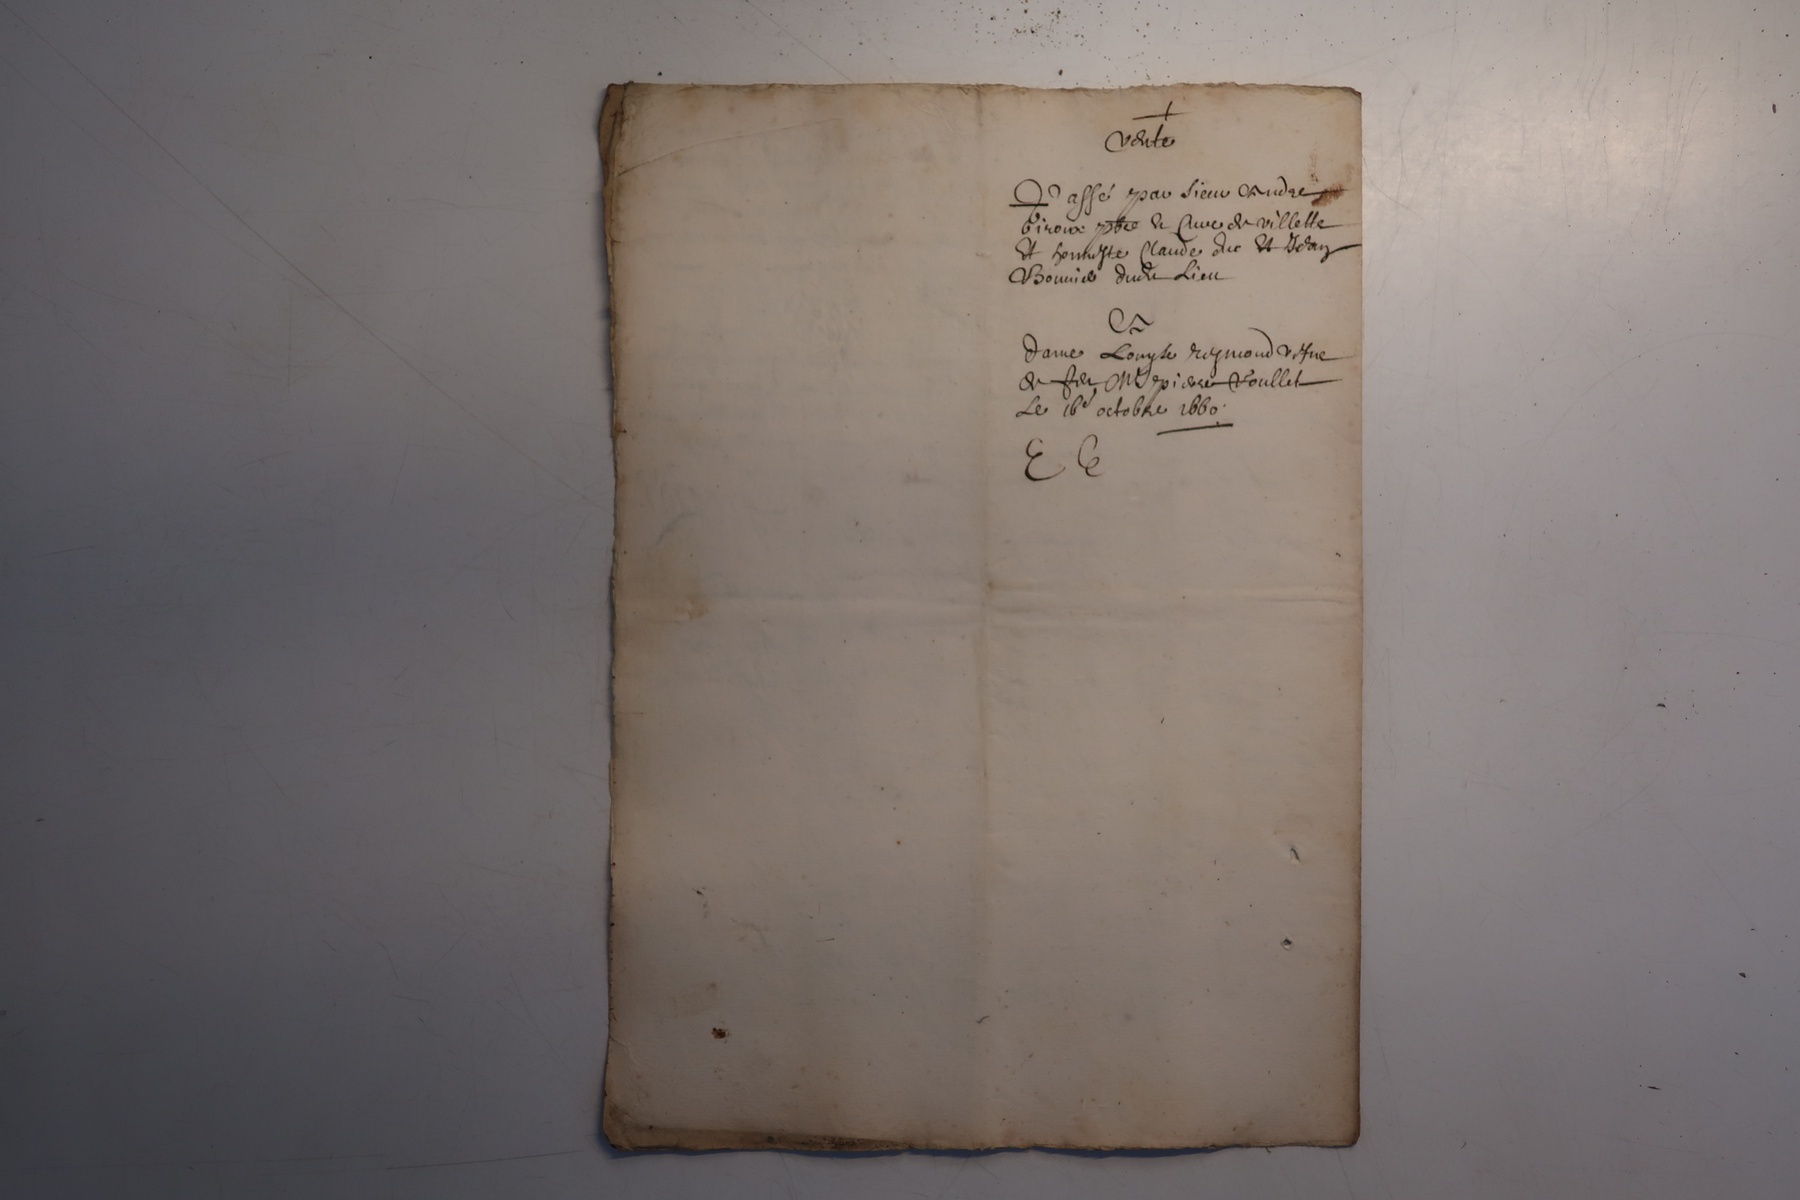 vente
Passé par sieur Andre
biroux pbre et Cure de villette
et honneste Claude duc et Jean
Bonnied dudt Lieu
A
dame Louyse reymond vefve
de feu Me pierre
Le 16e octobre 1660